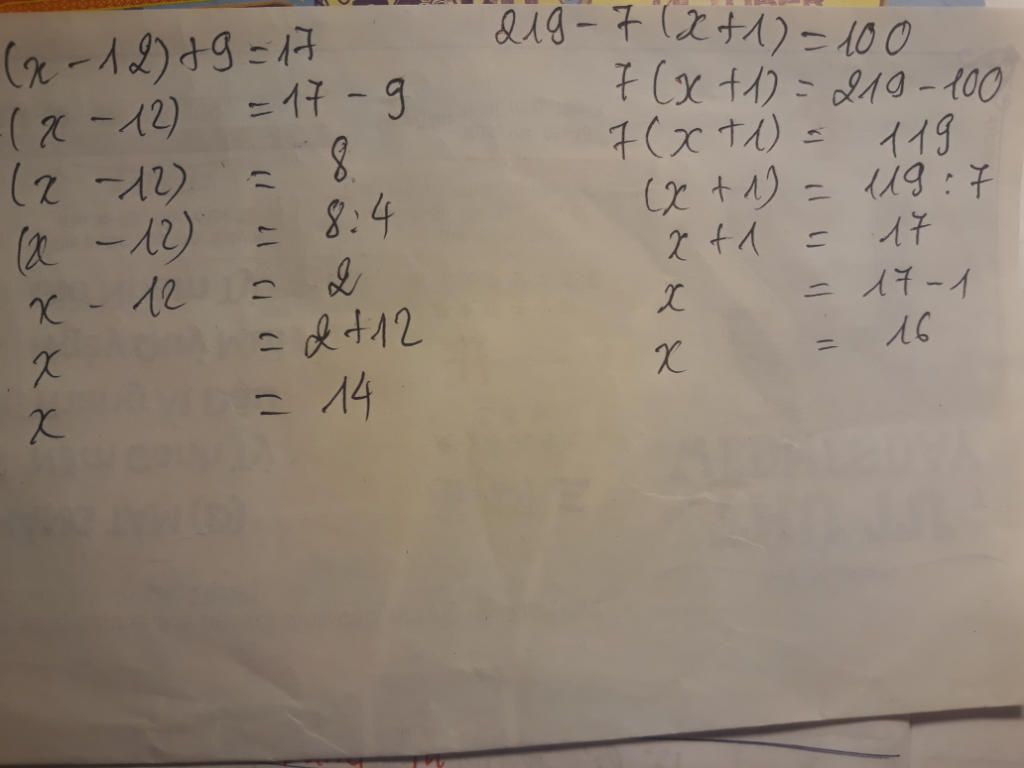 (x - 12) + 9 = 17
(x - 12) = 17 - 9
(x - 12) = 8
(x - 12) = 8 : 4
x - 12 = 2
x = 2 + 12
x = 14
219 - 7 (x + 1) = 100
7 (x + 1) = 219 - 100
7 (x + 1) = 119
(x + 1) = 119 : 7
x + 1 = 17
x = 17 - 1
x = 16